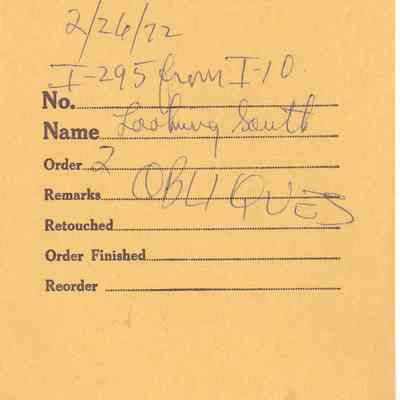 2/26/72
I-295 from I-10
No.
Name Looking South
Order 2
Remarks OBLIQUES
Retouched
Order Finished
Reorder